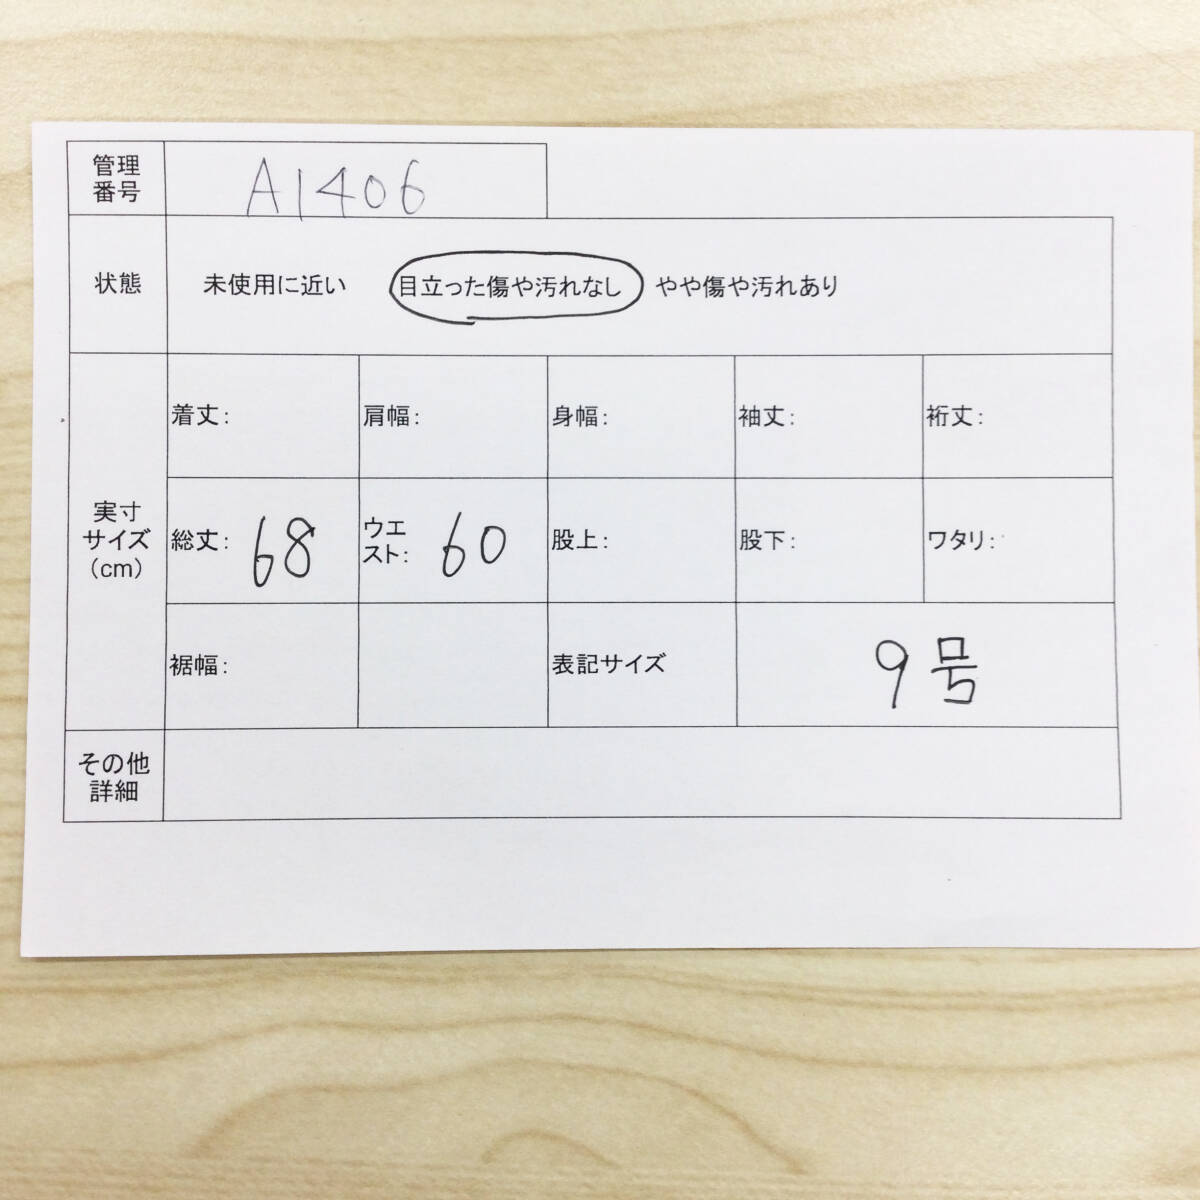 管理
番号
A1406
状態
未使用に近い 目立った傷や汚れなし やや傷や汚れあり
着丈: 肩幅: 身幅: 袖丈: 裄丈:
実寸
サイズ
(cm)
総丈: 68
ウエ
スト: 60
股上: 股下: ワタリ:
裾幅: 表記サイズ 9号
その他
詳細